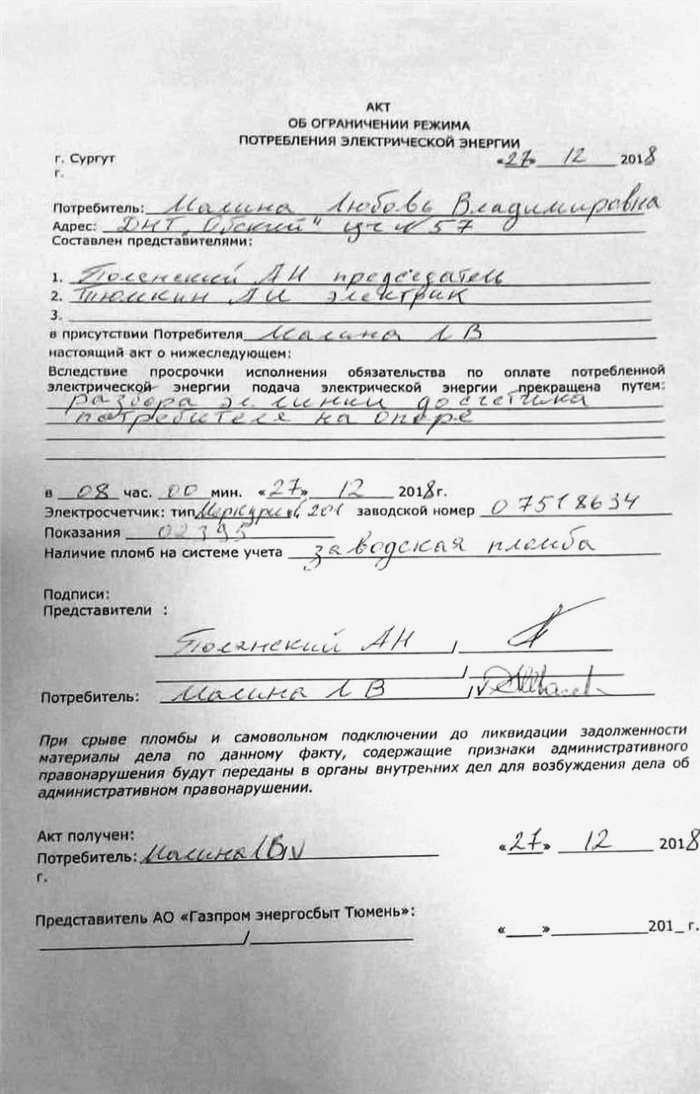 АКТ
ОБ ОГРАНИЧЕНИИ РЕЖИМА
ПОТРЕБЛЕНИЯ ЭЛЕКТРИЧЕСКОЙ ЭНЕРГИИ
г. Сургут «27» 12 2018
г.
Потребитель: Малина Любовь Владимировна
Адрес: ДНТ "Обский" уч N 57
Составлен представителями:
1. Полянский АН председатель
2. Тюмкин АИ электрик
3.
в присутствии Потребителя Малина Л В
настоящий акт о нижеследующем:
Вследствие просрочки исполнения обязательства по оплате потребленной
электрической энергии подача электрической энергии прекращена путем:
разбора эл линии до счетчика
потребителя на опоре
в 08 час. 00 мин. «27» 12 2018г.
Электросчетчик: тип Меркурий 201 заводской номер 07518634
Показания 02395
Наличие пломб на системе учета заводская пломба
Подписи:
Представители :
Полянский АН /
/
Потребитель: Малина Л В /
При срыве пломбы и самовольном подключении до ликвидации задолженности
материалы дела по данному факту, содержащие признаки административного
правонарушения будут переданы в органы внутренних дел для возбуждения дела об
административном правонарушении.
Акт получен:
Потребитель: Малина Л В «27» 12 2018
г.
Представитель АО «Газпром энергосбыт Тюмень»:
/ « » 201_ г.